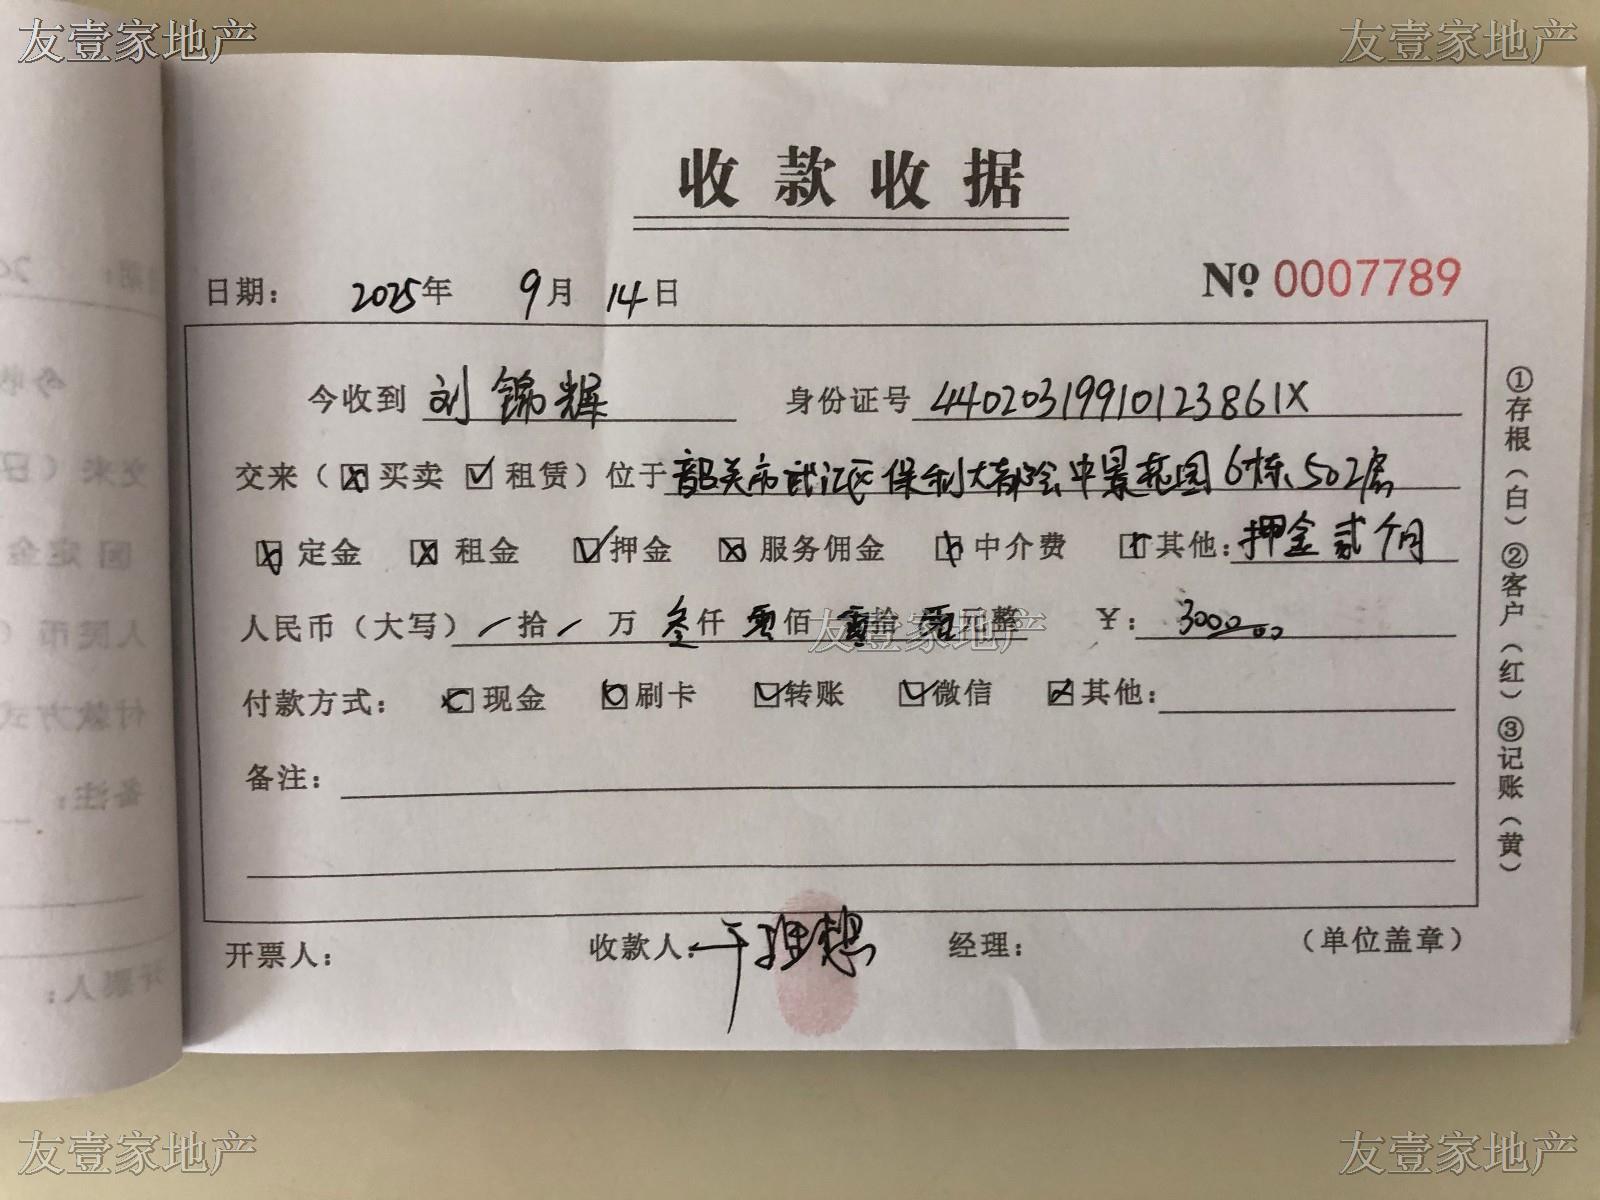 友壹家地产 友壹家地产
收款收据
日期： 2025年 9月 14日 № 0007789
今收到 刘锦辉 身份证号 44020319910123861X
交来（☒买卖 ☑租赁）位于 韶关市武江区保利大都会中景花园6栋502房
☒定金 ☒租金 ☑押金 ☒服务佣金 ☒中介费 ☒其他：押金贰个月
人民币（大写） / 拾 / 万 叁仟 零佰 零拾 零元整 ¥：3000.00
友壹家地产
付款方式： 现金 刷卡 ☑转账 ☑微信 其他：
备注：
开票人： 收款人： 理想 经理： （单位盖章）
①存根（白）②客户（红）③记账（黄）
交来（
定金
人民币（
付款方式
备注：
开票人：
友壹家地产 友壹家地产